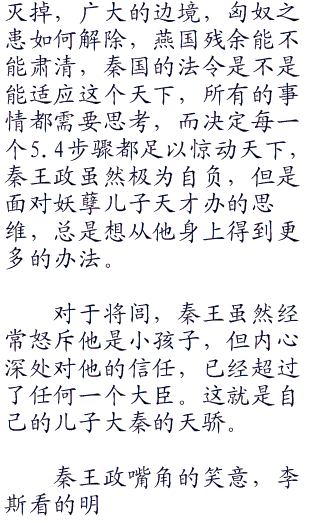 灭掉，广大的边境，匈奴之
患如何解除，燕国残余能不
能肃清，秦国的法令是不是
能适应这个天下，所有的事
情都需要思考，而决定每一
个5.4步骤都足以惊动天下，
秦王政虽然极为自负，但是
面对妖孽儿子天才办的思
维，总是想从他身上得到更
多的办法。
对于将闾，秦王虽然经
常怒斥他是小孩子，但内心
深处对他的信任，已经超过
了任何一个大臣。这就是自
己的儿子大秦的天骄。
秦王政嘴角的笑意，李
斯看的明